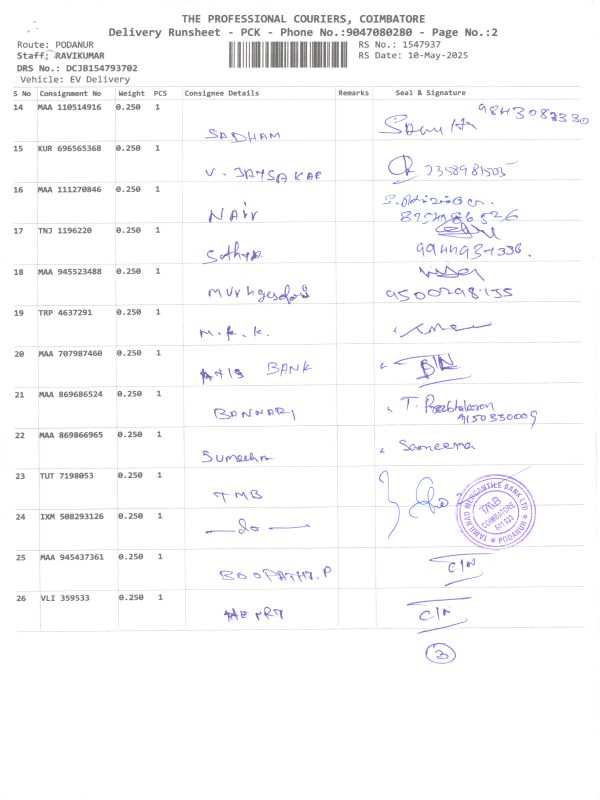 THE PROFESSIONAL COURIERS, COIMBATORE
Delivery Runsheet - PCK - Phone No.:9047080280 - Page No.:2
Route: PODANUR RS No.: 1547937
Staff: RAVIKUMAR RS Date: 10-May-2025
DRS No.: DCJB154793702
Vehicle: EV Delivery
S No Consignment No Weight PCS Consignee Details Remarks Seal & Signature
14 MAA 110514916 0.250 1 SADHAM
15 KUR 696565368 0.250 1 V. JAYSAKAR
16 MAA 111270846 0.250 1 NAIR
17 TNJ 1196220 0.250 1 Sathya 9944937336.
18 MAA 945523488 0.250 1 9500298135
19 TRP 4637291 0.250 1 M.K.K.
20 MAA 707987460 0.250 1 AXIS BANK
21 MAA 869686524 0.250 1 BANNARI T. 9150330009
22 MAA 869866965 0.250 1 Sameema
23 TUT 7198053 0.250 1 TMB
TAMILNAD MERCANTILE BANK LTD
TMB
COIMBATORE
641 023
PODANUR
24 IXM 508293126 0.250 1 —do—
25 MAA 945437361 0.250 1 BOOPATHY.P C/N
26 VLI 359533 0.250 1 C/N
3